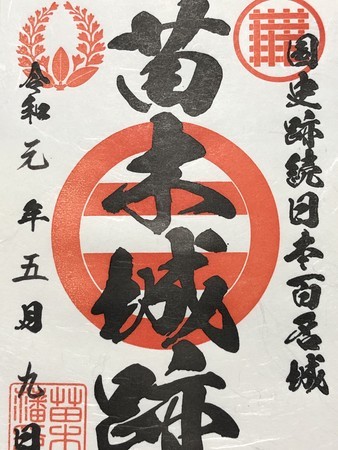 国史跡続日本百名城
苗木城跡
令和元年五月九日
苗木